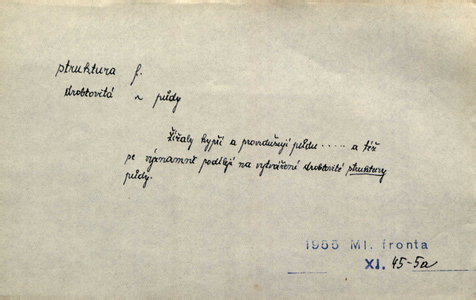 struktura f.
drobtovitá ~ půdy
Žížaly kypří a provdušují půdu ..... a též
se významně podílejí na vytváření drobtovité struktury
půdy.
1955 Ml. fronta
XI. 45-5a